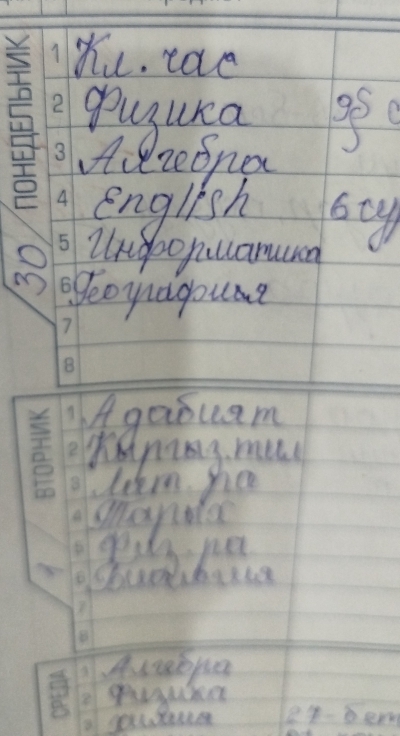 ПОНЕДЕЛЬНИК
30
1 Кл. час
2 Физика 95
3 Алгебра
4 English 6 су
5 Информатика
6 География
7
8
ВТОРНИК
1
1 Адабият
2 Кыргыз тил
3 Лит ра
4 Тарых
5 Физ ра
6 Биология
7
8
СРЕДА
1 Алгебра
2 Физика
3 химия 27-бет